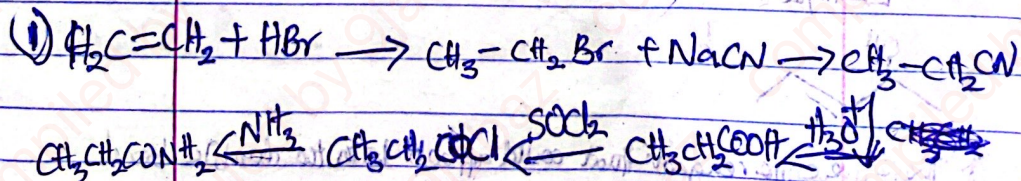 ① H₂C=CH₂ + HBr ⟶ CH₃-CH₂Br + NaCN ⟶ CH₃-CH₂CN
CH₃CH₂CONH₂ ⟵NH₃ CH₃CH₂COCl ⟵SOCl₂ CH₃CH₂COOH ⟵H₃O⁺ ↓